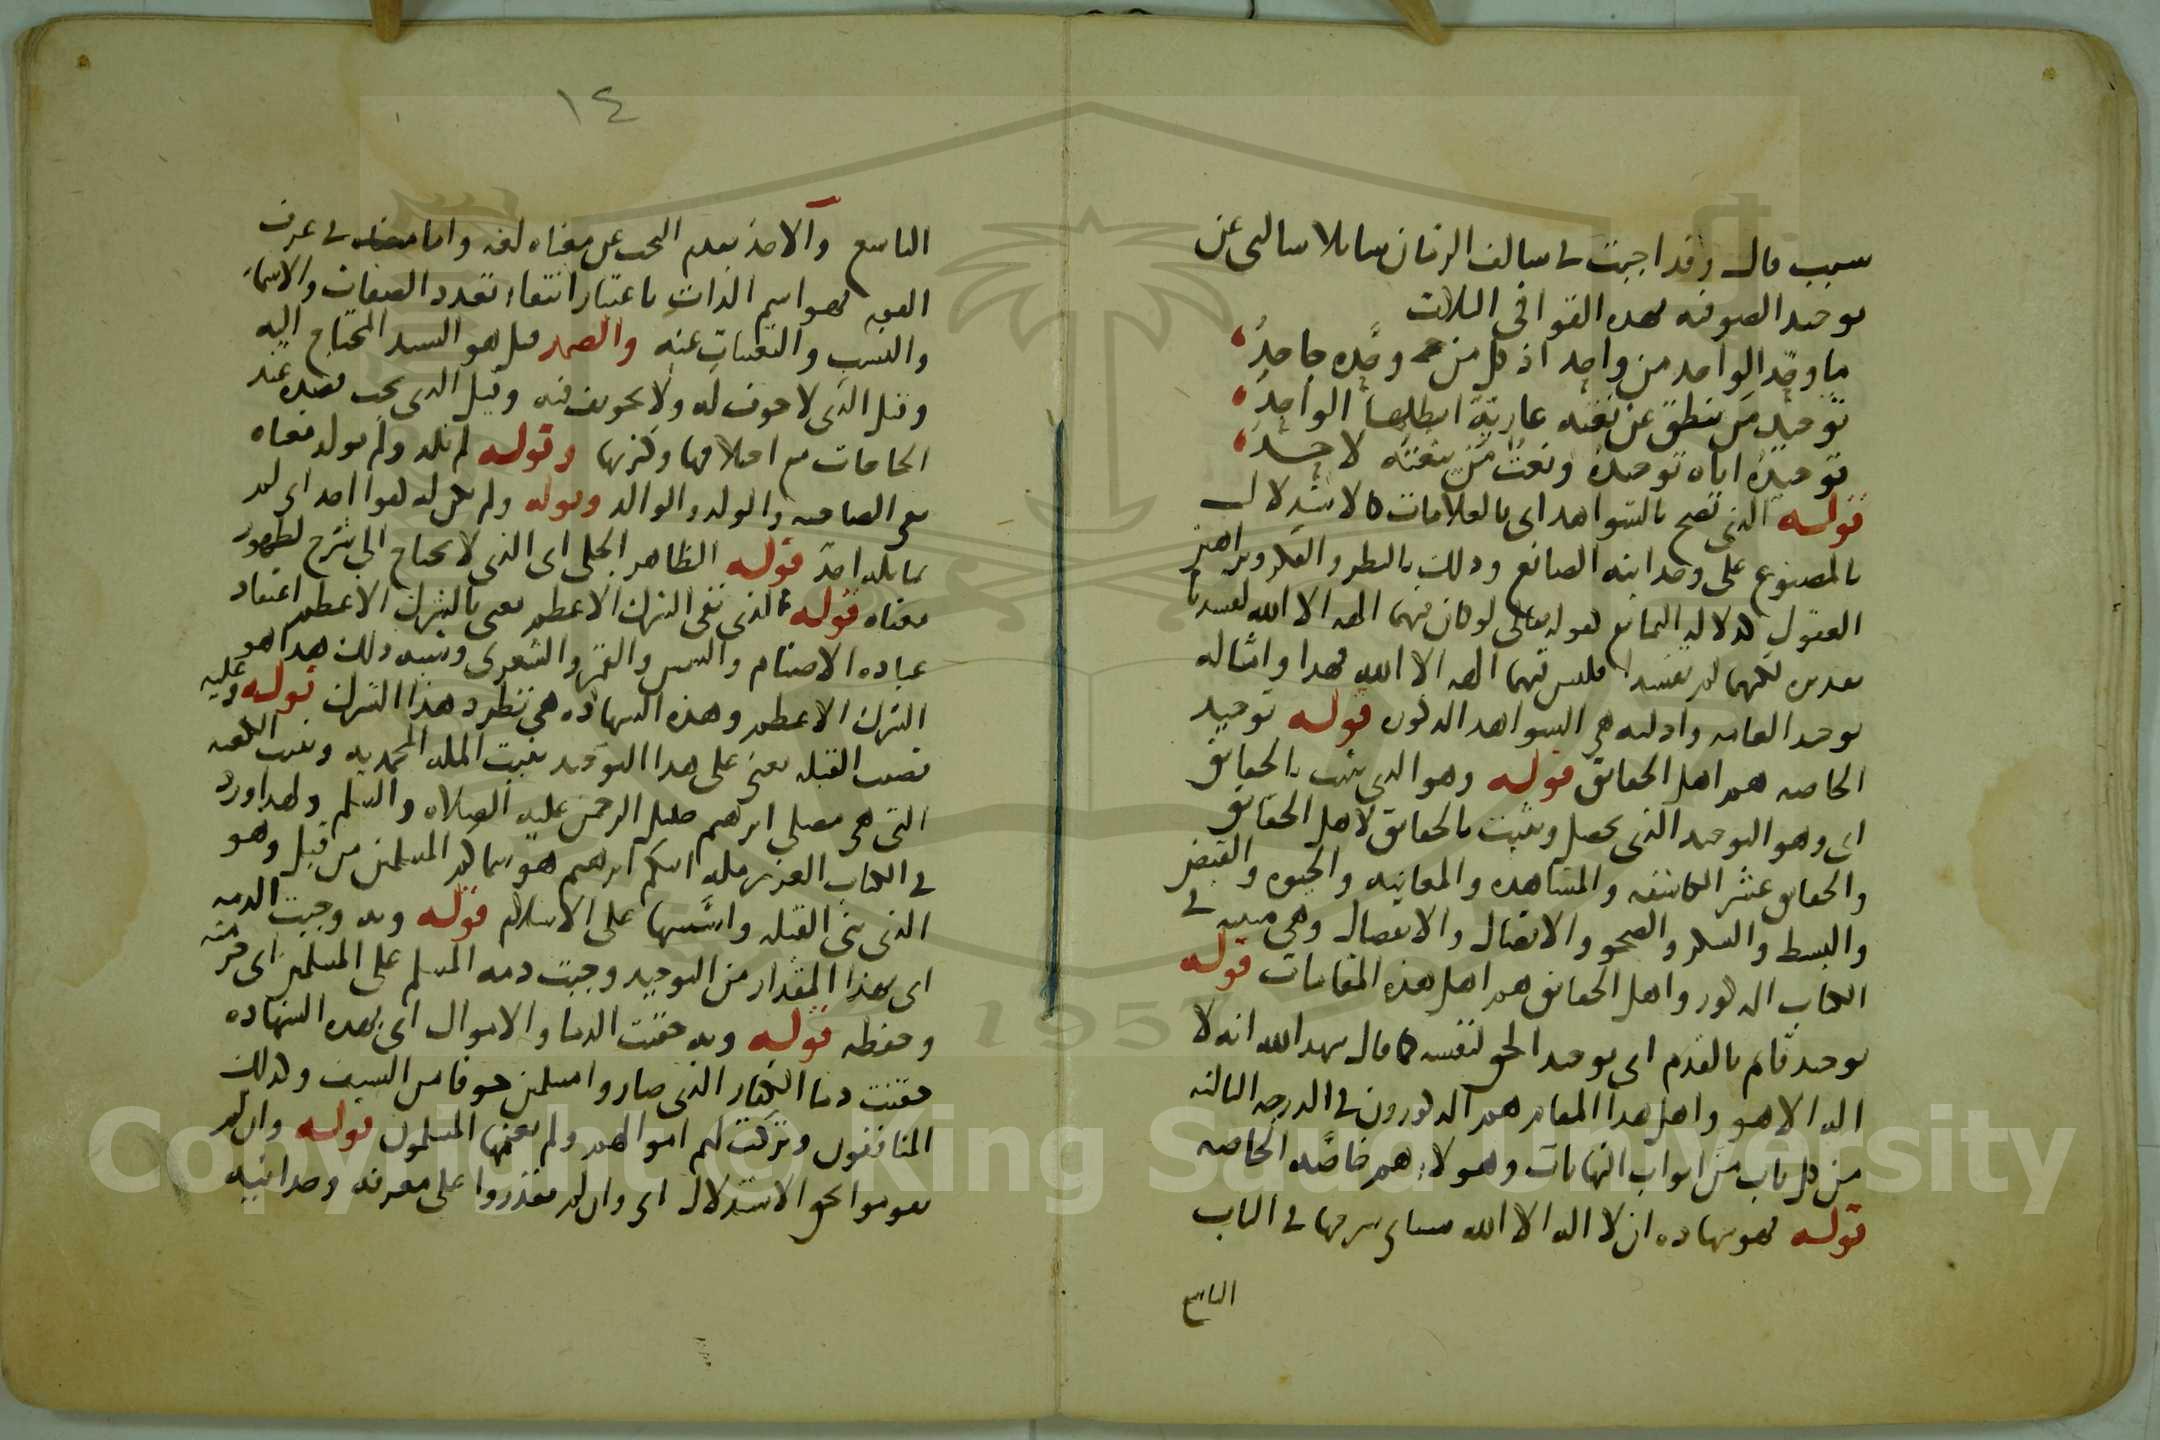 سبب قال وقد اجبت في سالف الزمان سايلا سالني عن
توحيد الصوفيه بهذه القوافي الثلاث
ما وحّد الواحد من واحد اذ كل من وحّده جاحدُ
توحيد من ينطق عن نعته عاريّة ابطلها الواحدُ
توحيدُه اياه توحيدُه ونعتُ من ينعته لاحدُ
قوله الذي تصح بالشواهد اي بالعلامات كالاستدلال
بالمصنوع على وحدانية الصانع وذلك بالنظر والفكر وبراهين
العقول كدلاله التمانع لقوله تعالى لو كان فيهما الهه الا الله لفسدتا
لكنهما لم تفسدا فليس فيهما الهه الا الله فهذا وامثاله
توحيد العامه وادلته هي الشواهد المذكوره قوله توحيد
الخاصه هم اهل الحقايق قوله وهو الذي يثبت بالحقايق
اي وهو التوحيد الذي يحصل ويثبت بالحقايق لاهل الحقايق
والحقايق عشر المكاشفه والمشاهده والمعاينه والحيوه والقبض
والبسط والسكر والصحو والاتصال والانفصال وهي مبينه في
الكتاب المذكور واهل الحقايق هم اهل هذه المقامات قوله
توحيد قايم بالقدم اي توحيد الحق لنفسه كما قال شهد الله انه لا
اله الا هو واهل هذا المقام هم المذكورون في الدرجه الثالثه
من كل باب من ابواب النهايات وهولاء هم خاصّه الخاصه
قوله فهو شهاده ان لا اله الا الله سياتي شرحها في الباب
التاسع
١٤
التاسع والاحد تقدم البحث عن معناه لغه واما معناه في عرف
القوم فهو اسم الذات باعتبار انتفاء تعدد الصفات والاسماء
والنسب والتعينات عنه والصمد قيل هو السيد المحتاج اليه
وقيل الذي لا جوف له ولا تجويف فيه وقيل الذي يجب قصده عند
الحاجات مع اختلافها وكثرتها وقوله لم يلد ولم يولد معناه
نفي الصاحبه والولد والوالد وقوله ولم يكن له كفوا احد اي لم
يماثله احد قوله الظاهر الجلي اي الذي لا يحتاج الى شرح لظهور
معناه قوله الذي نفى الشرك الاعظم يعني بالشرك الاعظم اعتقاد
عباده الاصنام والشمس والقمر والشعرى وشبه ذلك هذا هو
الشرك الاعظم وهذه الشهاده هي تطرد هذا الشرك قوله وعليه
نصبت القبله يعني على هذا التوحيد بنيت المله المحمديه ونصبت الكعبه
التي هي مصلى ابرهيم خليل الرحمن عليه الصلاه والسلم ولهذا ورد
في الكتاب العزيز مله ابيكم ابرهيم هو سماكم المسلمين من قبل وهو
الذي بنى القبله واسّسها على الاسلام قوله وبه وجبت الذمه
اي بهذا المقدار من التوحيد وجبت ذمه المسلم على المسلمين اي حرمته
وحفظه قوله وبه حقنت الدما والاموال اي بهذه الشهاده
حقنت دما الكفار الذي صاروا مسلمين خوفا من السيف وكذلك
المنافقون وتركت لهم اموالهم ولم يغنمها المسلمون قوله وان لم
يقوموا بحق الاستدلال اي وان لم يقدروا على معرفه وحدانيه
Copyright © King Saud University
1957